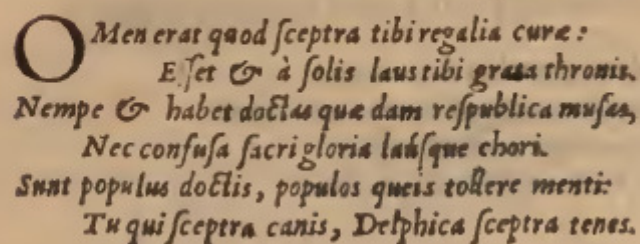 OMen erat quod ſceptra tibi regalia curæ:
Eſſet & à ſolis laus tibi grata thronis.
Nempe & habet doctas quædam reſpublica muſas,
Nec confuſa ſacri gloria lauſque chori.
Sunt populus doctis, populos queis tollere menti:
Tu qui ſceptra canis, Delphica ſceptra tenes.